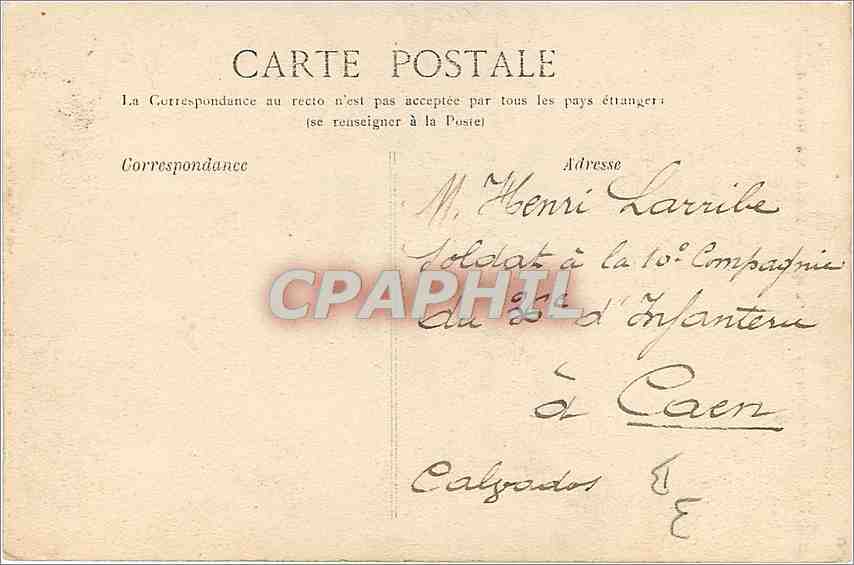 CARTE POSTALE
La Correspondance au recto n'est pas acceptée par tous les pays étrangers
(se renseigner à la Poste)
Correspondance
Adresse
M. Henri Larribe
Soldat à la 10e Compagnie
CPAPHIL
du d'Infanterie
à Caen
Calvados